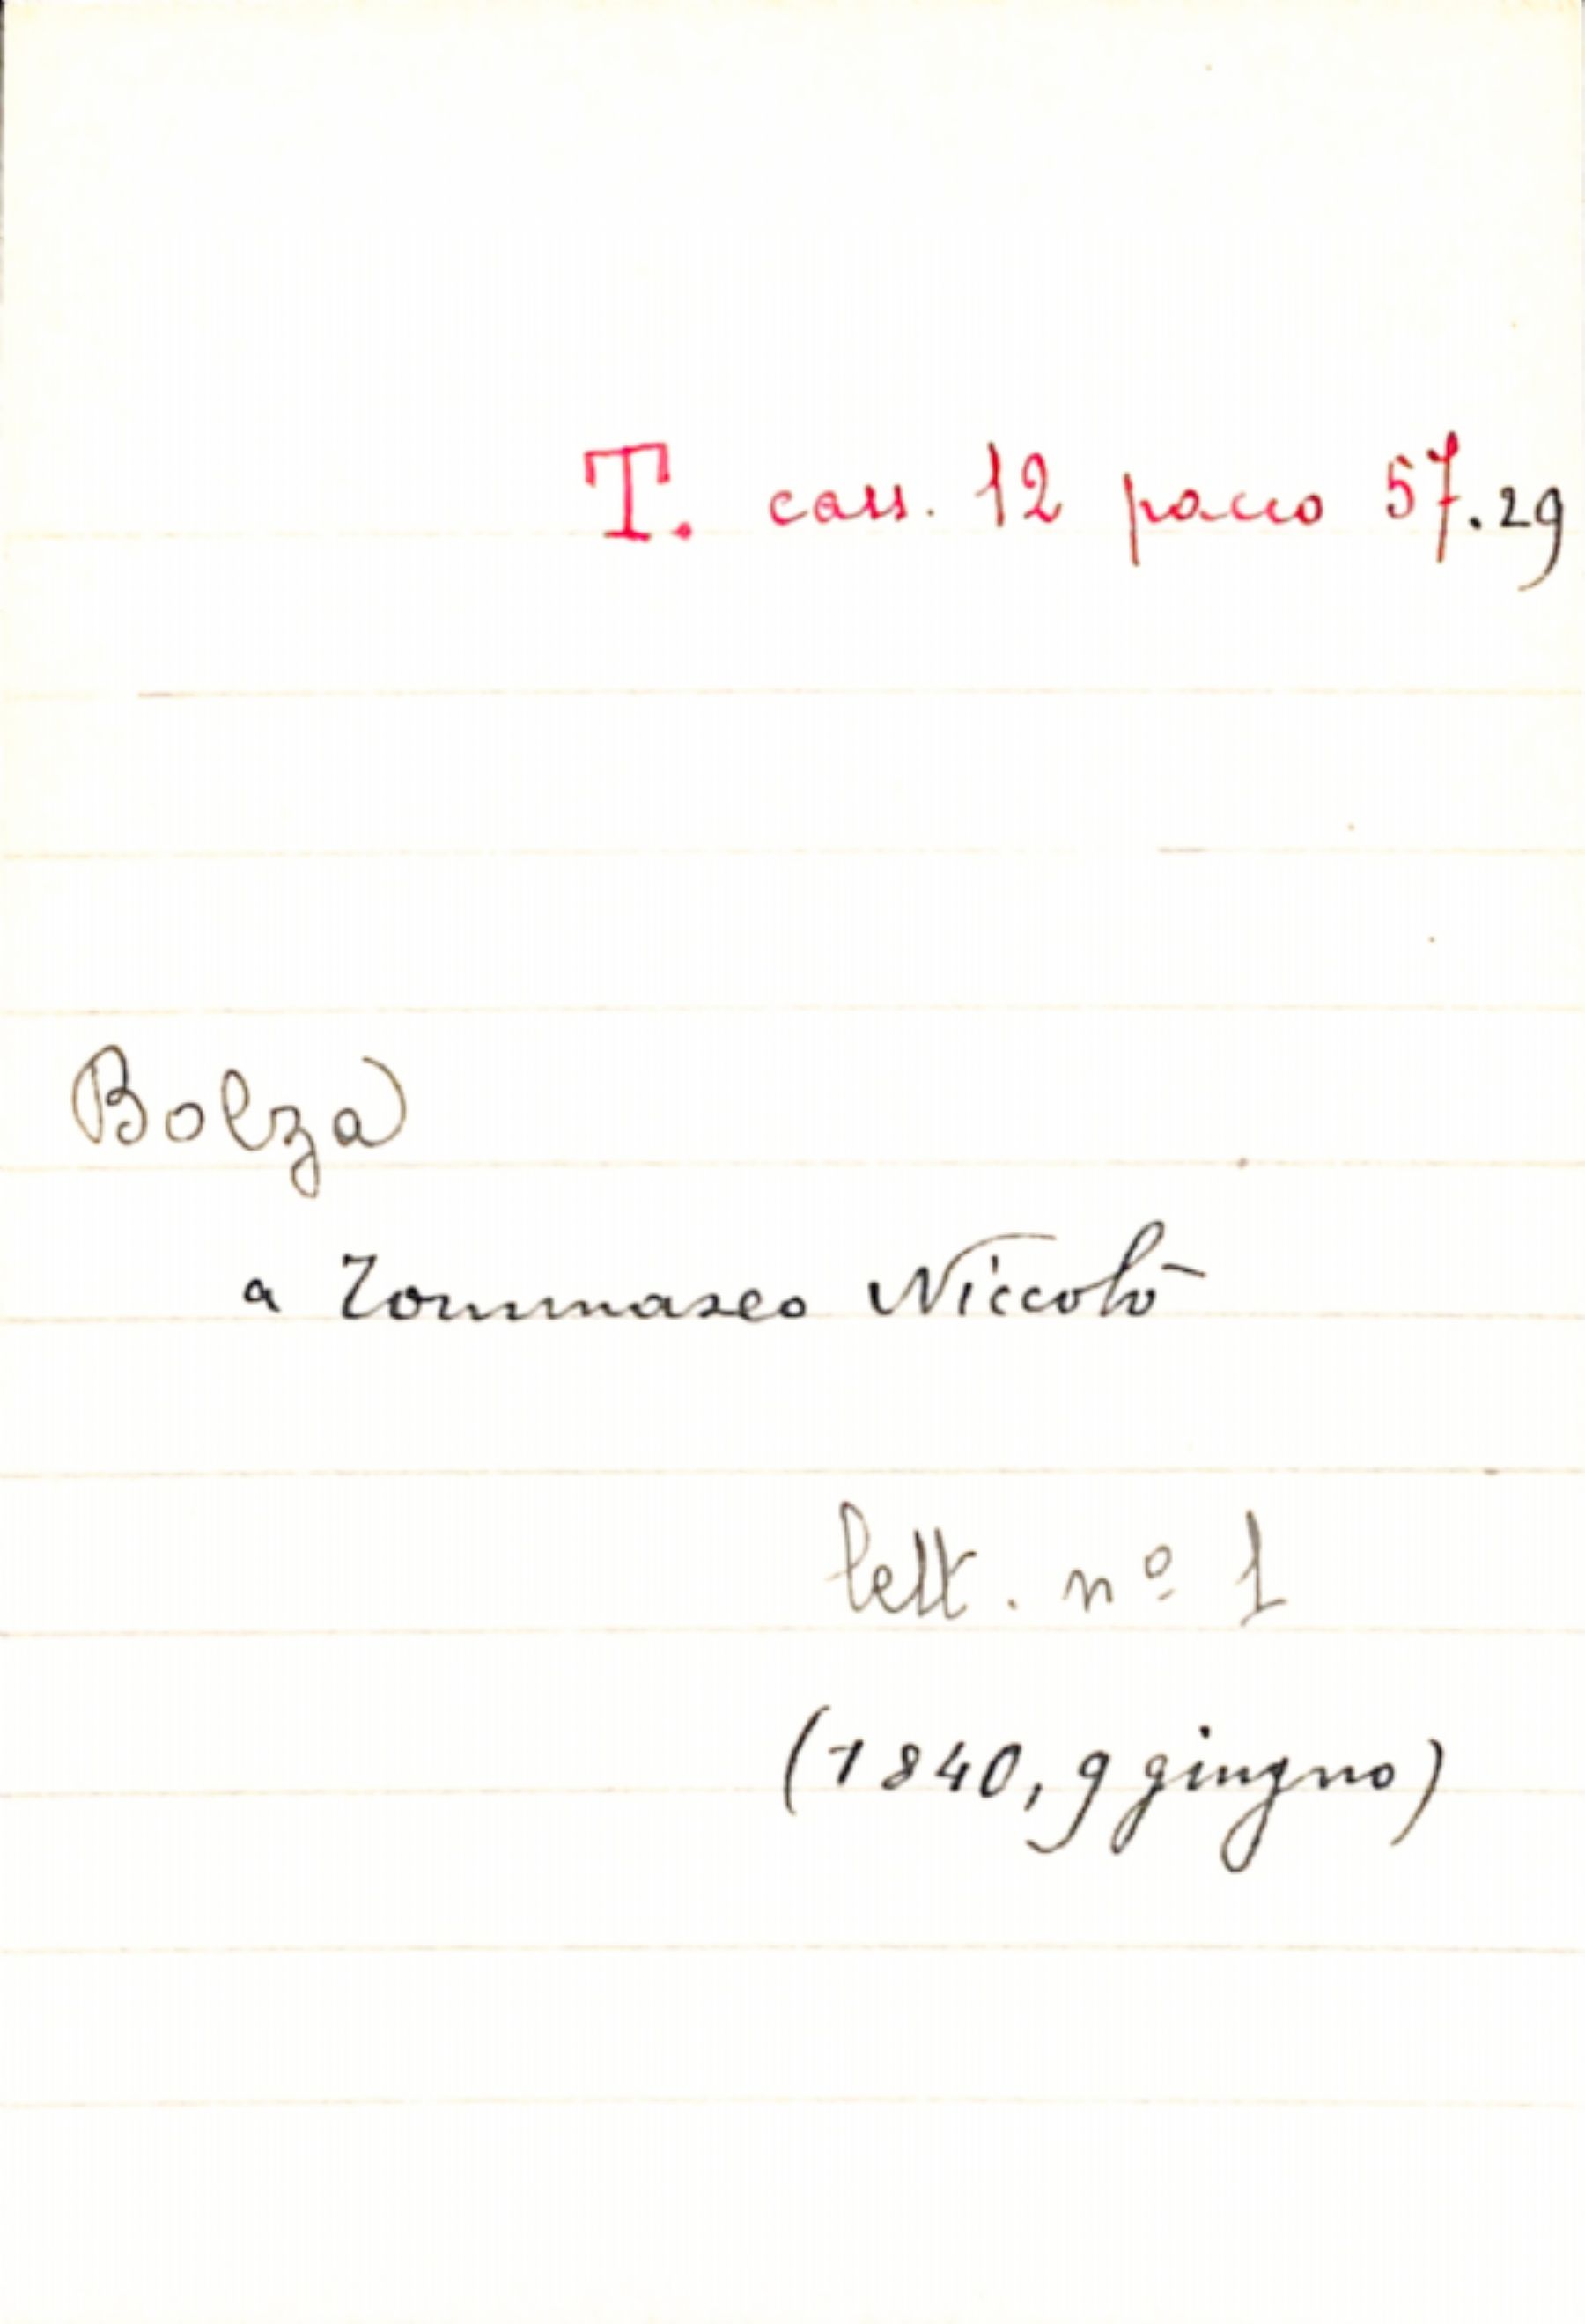 T. cass. 12 pacco 57.29
Bolza
a Tommaseo Niccolò
lett. nº 1
(1840, 9 giugno)